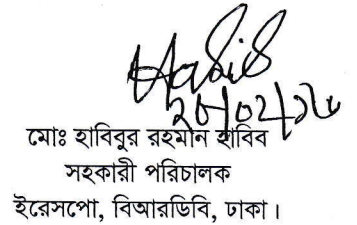 Habib
মোঃ হাবিবুর রহমান হাবিব
সহকারী পরিচালক
ইরেসপো, বিআরডিবি, ঢাকা।